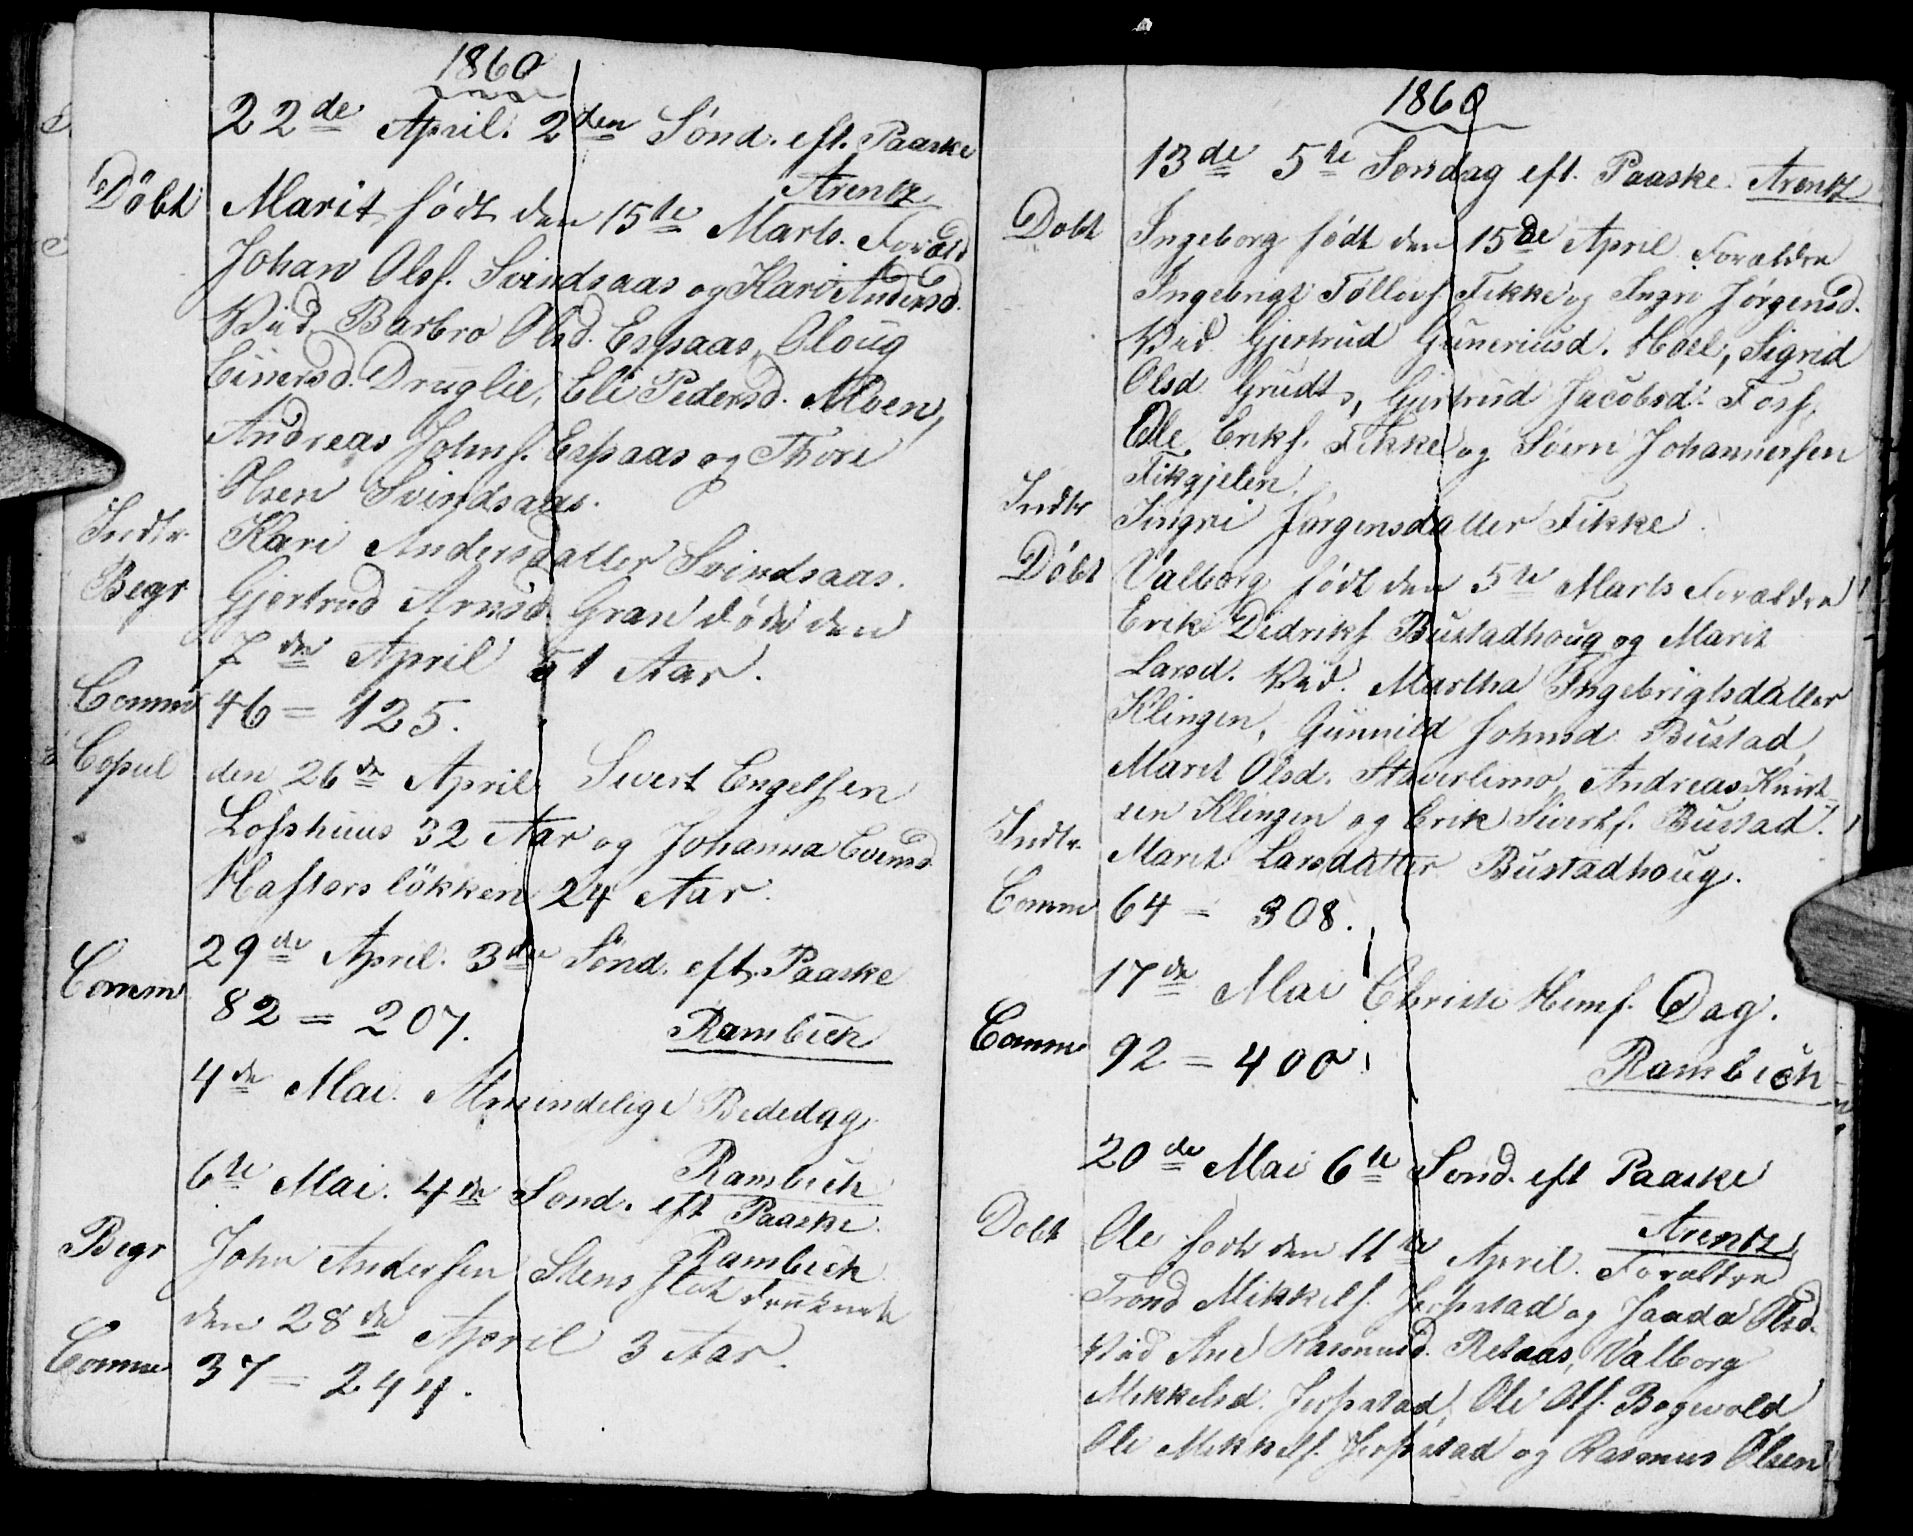 1860
22de April. 2den Sönd. eft. Paaske
Arentz
Döbt Marit födt den 15te Marts. Foræld
Johan Olsf. Svindsaas og Kari Andersd.
Vid. Barbro Olsd. Espaas, Oloug
Einersd. Druglie, Eli Pedersd. Moen,
Andreas Johnf. Espaas og Thore
Olsen Svindsaas.
Indtr. Kari Andersdatter Svindsaas.
Begr Gjertrud Arnsd. Gran döde den
7de April 51 Aar.
Comm 46 = 125.
Copul den 26de April. Sivert Engelsen
Lofshuus 32 Aar og Johanna Evensd.
Haftorslökken 24 Aar.
29de April. 3die Sönd. eft. Paaske
Comm 82 = 207. Rambech
4de Mai. Almindelige Bededag
Rambech
6te Mai. 4de Sond. eft Paaske.
Rambech
Begr John Andersen Stens slet druknede
den 28de April 3 Aar.
Comm 37 = 244.
1860
13de 5te Sondag eft. Paaske. Arentz
Dobt Ingeborg födt den 15de April Forældre
Ingebrigt Tollevf Fikke og Ingri Jörgensd.
Vid. Gjertrud Guneriusd. Hoel, Sigrid
Olsd. Grudt, Gjertrud Jacobsd. Fosf,
Ole Erikf. Fikke og Sören Johannesen
Fikgjelen.
Indtr Singri Jörgensdatter Fikke.
Döbt Valborg födt den 5te Marts Forældre
Erik Didrikf Bustadhoug og Marit
Larsd. Vid. Martha Ingebrigtsdatter
Klingen, Gunnild Johnsd Bustad,
Marit Olsd. Staverlimo, Andreas Knut-
sen Klingen og Erik Sivertf. Bustad.
Indtr. Marit Larsdatter Bustadhoug.
Comm 64 = 308.
17de Mai Christi Himf. Dag.
Comm 92 = 400. Rambech
20de Mai 6te Sond. eft Paaske
Arentz
Dobt Ole födt den 11te April. Foraldre
Trond Mikkelf. Jerpstad og Jaada Olsd.
Vid Ane Rasmusd. Refaas, Valborg
Mikkelsd. Jerpstad, Ole Olf. Bogevold
Ole Mikkelf. Jerpstad og Rasmus Olsen